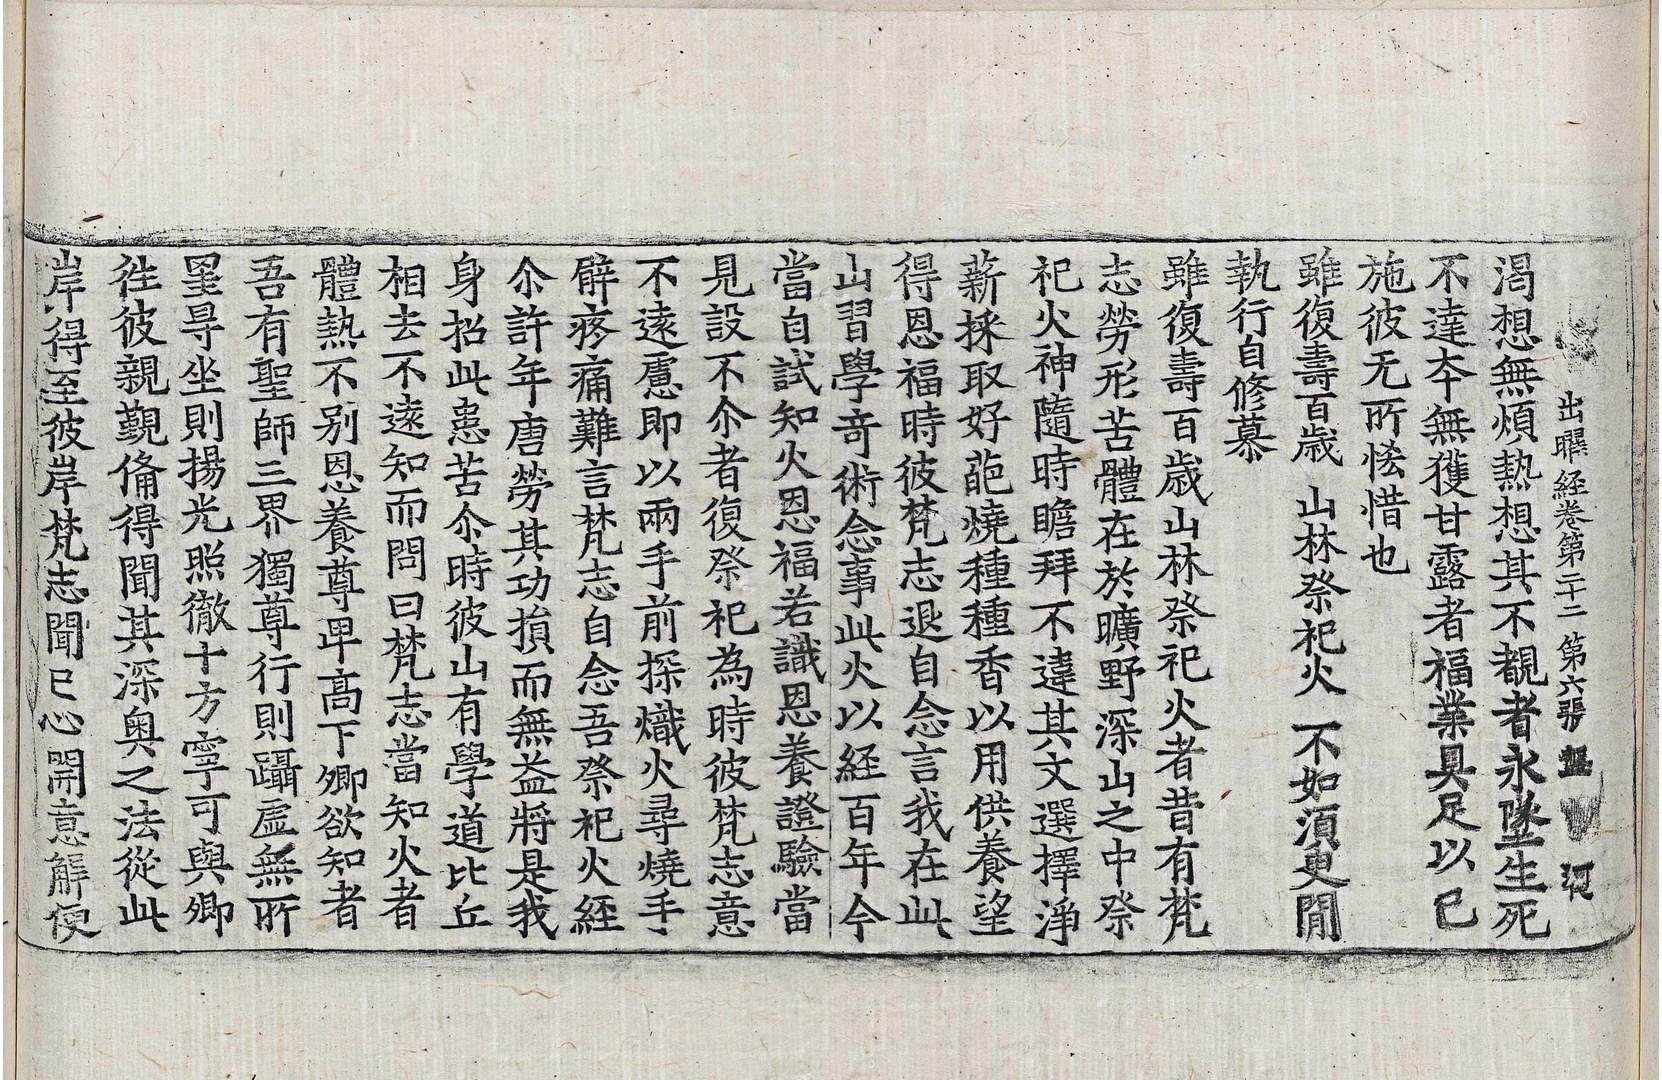 出曜経卷第二十二 第六張
渇想無煩熱想其不覩者永墜生死
不達夲無獲甘露者福業具足以已
施彼无所恡惜也
雖復壽百歳 山林祭祀火 不如須臾閒
執行自修慕
雖復壽百歳山林祭祀火者昔有梵
志勞形苦體在於曠野深山之中祭
祀火神隨時瞻拜不違其文選擇淨
薪採取好葩燒種種香以用供養望
得恩福時彼梵志退自念言我在此
山習學竒術念事此火以経百年今
當自試知火恩福若識恩養證驗當
見設不尒者復祭祀為時彼梵志意
不遠慮即以兩手前探熾火尋燒手
臂疼痛難言梵志自念吾祭祀火経
尒許年唐勞其功損而無益將是我
身招此患苦尒時彼山有學道比丘
相去不遠知而問曰梵志當知火者
體熱不別恩養尊卑高下卿欲知者
吾有聖師三界獨尊行則躡虛無所
罣㝵坐則揚光照徹十方寧可與卿
往彼親覲脩得聞其深奥之法從此
岸得至彼岸梵志聞已心開意解便